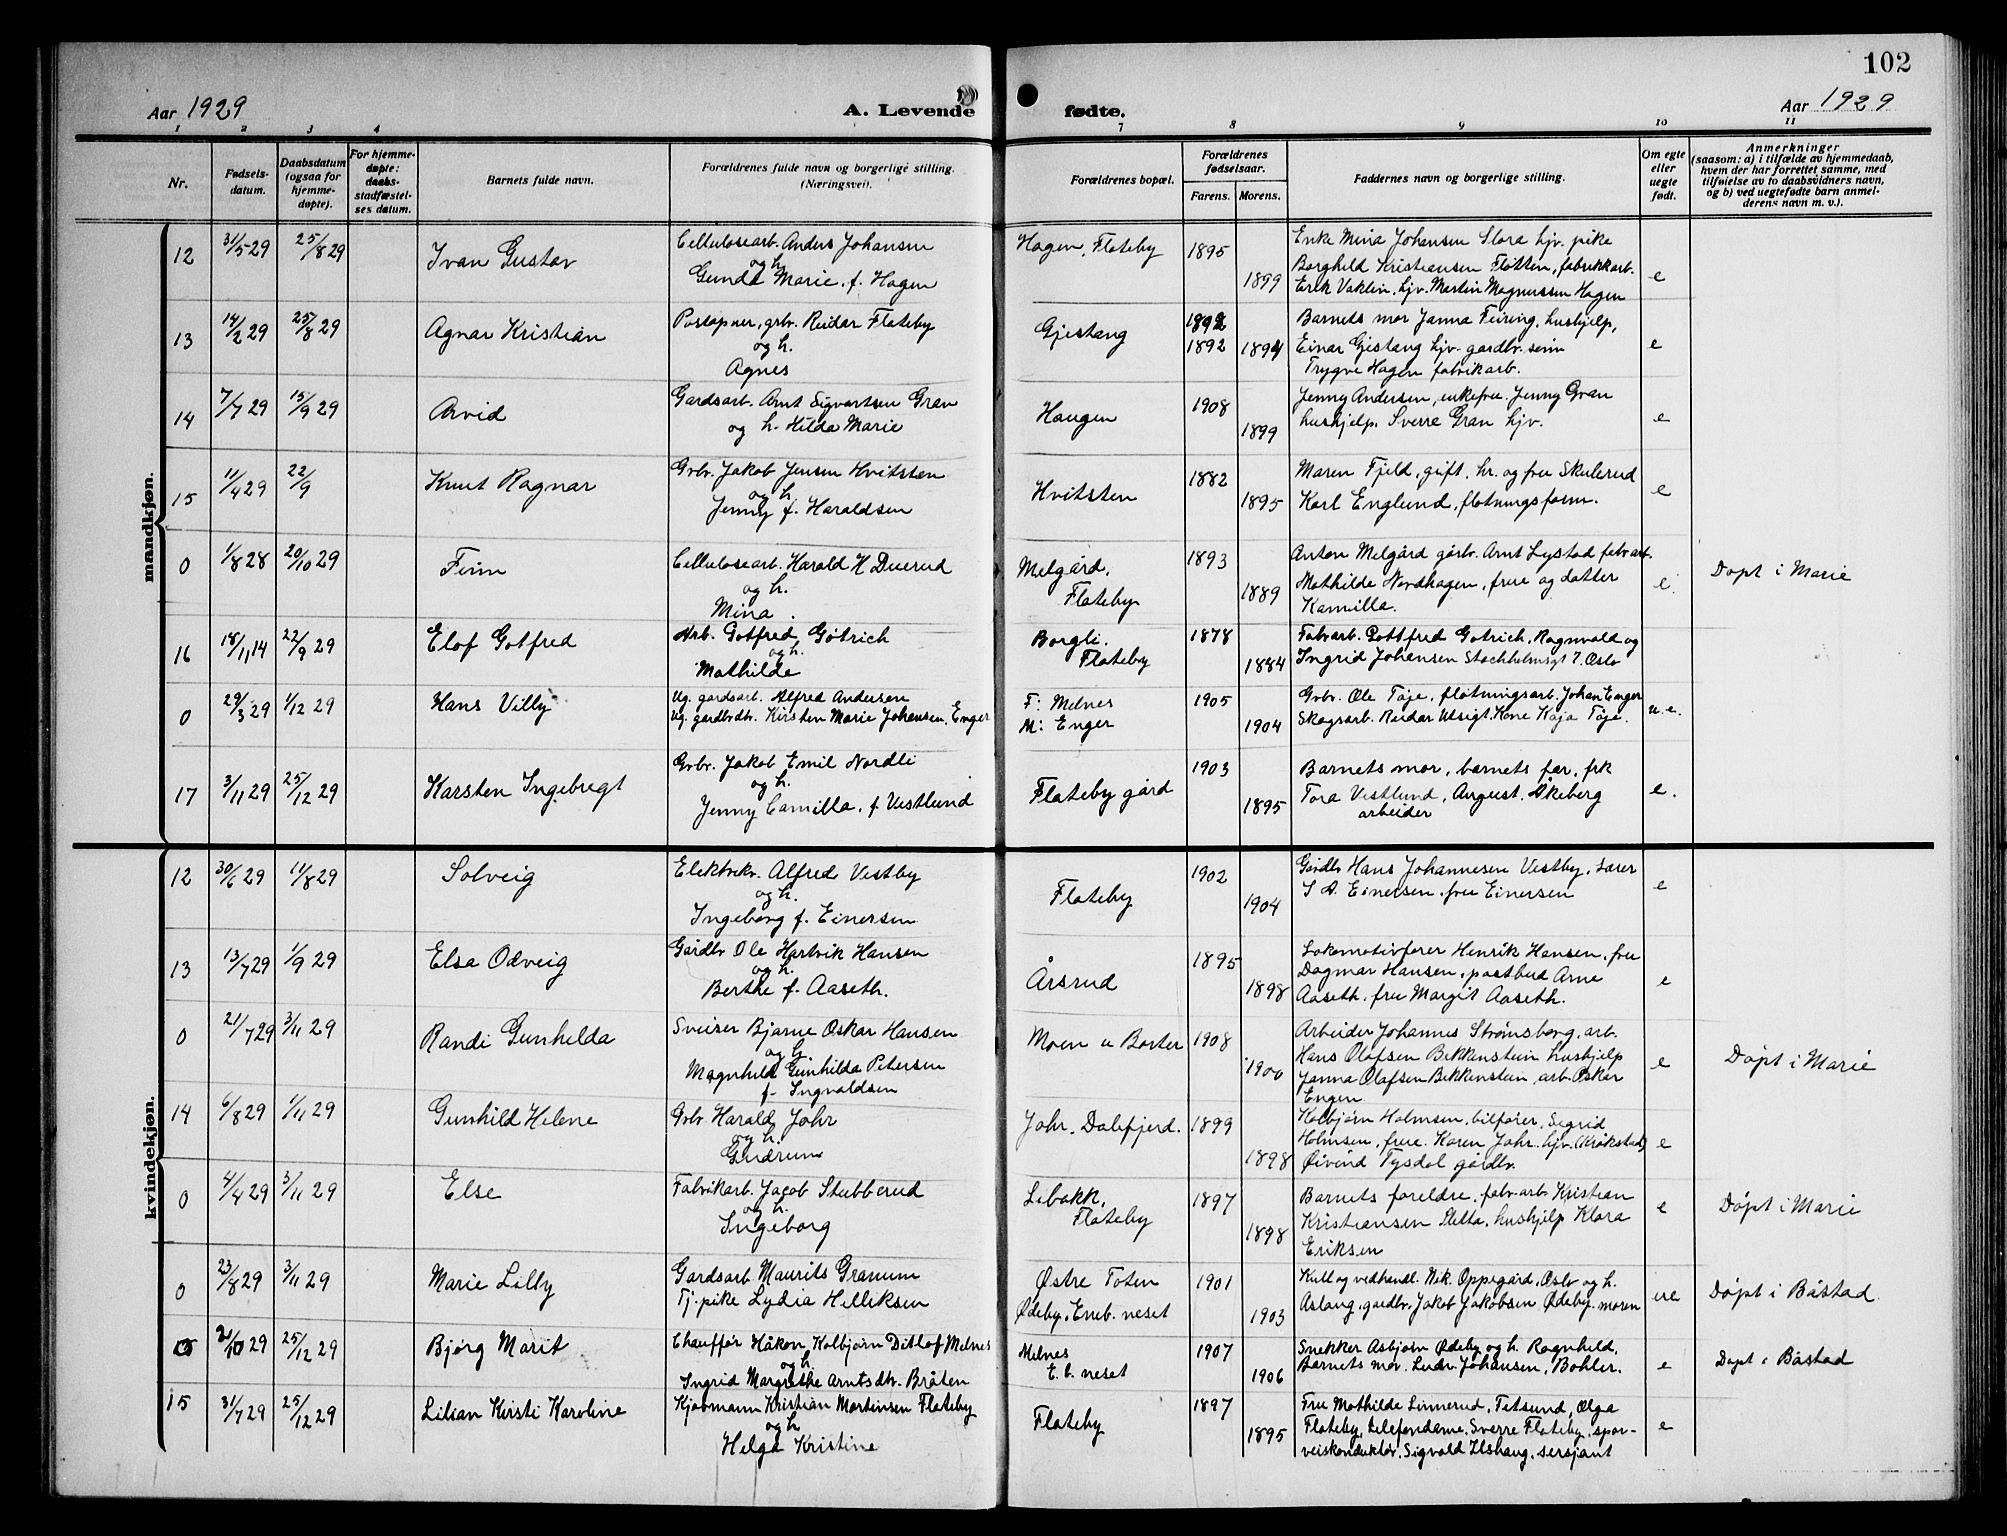 102
Aar 1929
A. Levende fødte.
Aar 1929
1 2 3 4 7 8 9 10 11
Nr.
Fødsels-
datum.
Daabsdatum
(ogsaa for
hjemme-
døpte).
For hjemme-
døpte:
daabs-
stadfæstel-
ses datum.
Barnets fulde navn.
Forældrenes fulde navn og borgerlige stilling.
(Næringsvei).
Forældrenes bopæl.
Forældrenes
fødselsaar.
Farens. Morens.
Faddernes navn og borgerlige stilling.
Om egte
eller
uegte
født.
Anmerkninger
(saasom: a) i tilfælde av hjemmedaab,
hvem der har forrettet samme, med
tilføielse av to daabsvidners navn,
og b) ved uegtefødte barn anmel-
derens navn m. v.).
mandkjøn.
12 31/5 29 25/8 29 Ivan Gustav
Cellulosearb. Anders Johansen
og h.
Gunda Marie. f. Hagen
Hagen, Flateby 1895 1899
Enke Mina Johansen Slora hjv. pike
Borghild Kristiansen Fløtten, fabrikkarb.
Erik Vaklin, hjv. Martin Magnussen Hagen
e
13 14/2 29 25/8 29 Agnar Kristian
Poståpner, grbr. Reidar Flateby
og h.
Agnes
Gjestang 1892
1892 1894
Barnets mor Janna Feiring, hushjelp,
Einar Gjestang hjv. gardbr. sønn
Trygve Hagen fabrikarb.
e
14 7/7 29 15/9 29 Arvid
Gardsarb. Arnt Sigvartsen Gran
og h. Hilda Marie
Haugen 1908 1899
Jenny Andersen, enkefru. Jenny Gran
hushjelp. Sverre Gran hjv.
e
15 11/4 29 22/9 Knut Ragnar
Grbr. Jakob Jensen Hvitsten
og h.
Jenny f. Haraldsen
Hvitsten 1882 1895
Maren Fjeld, gift. hr. og fru Skulerud
Karl Englund, fløtningsform.
e
0 1/8 28 20/10 29 Finn
Cellulosearb. Harald H Duerud
og h.
Mina.
Melgård.
Flateby 1893 1889
Anton Melgård gårbr. Arnt Lystad fabr arb.
Mathilde Nordhagen, frue og datter
Kamilla.
e.
Døpt i Marie
16 18/11 14 22/9 29 Elof Gotfred
Arb. Gotfred Götrich
og h.
Mathilde
Borgli.
Flateby 1878 1884
Fabrarb. Gottfred Gotrich, Ragnvald og
Ingrid Johansen Stockholmsgt 7. Oslo
0 29/3 29 1/12 29 Hans Villy
Ug. gardsarb. Alfred Andersen
Ug. gardbrdtr. Kirsten Marie Johansen. Enger
F: Melnes
M: Enger 1905 1904
Grbr. Ole Tøje, fløtningsarb. Johan Enger
Skogsarb. Reidar Utsigt. Kone Kaja Tøje.
u.e.
17 3/11 29 25/12 29 Karsten Ingebregt
Grbr. Jakob Emil Nordli
og h.
Jenny Camilla. f Vestlund
Flateby gård 1903 1895
Barnets mor, barnets far, frk
Tora Vestlund, August Åkeberg
arbeider
e.
kvindekjøn.
12 30/6 29 11/8 29 Solveig
Elektrikr. Alfred Vestby
og h.
Ingeborg f. Einersen
Flateby 1902 1904
Gårdbr Hans Johannesen Vestby, Lærer
S A. Einersen, fru Einersen
e
13 13/7 29 1/9 29 Elsa Odveig
Gårdbr Ole Hartvik Hansen
og h.
Berthe f. Aaseth.
Årsrud 1895 1898
Lokomotivfører Henrik Hansen, fru
Dagmar Hansen, postbud Arne
Aaseth, fru Margit Aaseth.
e
0 21/7 29 3/11 29 Randi Gunhilda
Sveiser Bjarne Oskar Hansen
og h.
Magnhild Gunhilda Petersen
f. Ingvaldsen
Moen u Børter 1908 1900
Arbeider Johannes Strønsborg, arb.
Hans Olafsen Bekkenstein hushjelp
Janna Olafsen Bekkenstein, arb. Oskar
Engen
e
Døpt i Marie
14 6/8 29 1/11 29 Gunhild Helene
Grbr Harald Johr
og h.
Gudrun
Johr. Dalefjerd. 1899 1898
Kolbjørn Holmsen, bilfører, Sigrid
Holmsen, frue. Karen Johr. hjv. (Kråkstad)
Øivind Tysdal gårdbr.
e
0 4/4 29 3/11 29 Else
Fabrikarb. Jacob Stubberud
og h.
Ingeborg
Libakk,
Flateby 1897 1898
Barnets foreldre, fabr. arb Kristian
Kristiansen Sletta, hushjelp Klara
Eriksen
e
Døpt i Marie
0 23/8 29 3/11 29 Marie Lilly
Gardsarb Maurits Granum
Tj. pike Lydia Helliksen
Østre Toten
Ødeby. Eneb. neset 1901 1903
Kull og vedhandl. Nik. Oppegård, Oslo og h.
Aslaug, gardbr. Jakob Jakobsen Ødeby, moren
ue
Døpt i Båstad
0 2/10 29 25/12 29 Bjørg Marit
Chauffør Håkon Kolbjørn Ditlof Melnes
og h.
Ingrid Margrethe Arntsdtr. Bråten
Melnes
E. b. neset 1907 1906
Snekker Asbjørn Ødeby og h. Ragnhild.
Barnets mor. Ludv. Johansen, Bøhler.
e
Døpt i Båstad
15 31/7 29 25/12 29 Lilian Kirsti Karoline
Kjøbmann Kristian Martinsen Flateby
og h.
Helga Kristine
Flateby 1897 1895
Fru Mathilde Linnerud, Fetsund, Olga
Flateby, telefondame. Sverre Flateby, spor-
veiskonduktør, Sigvald Ilshaug, sersjant
e